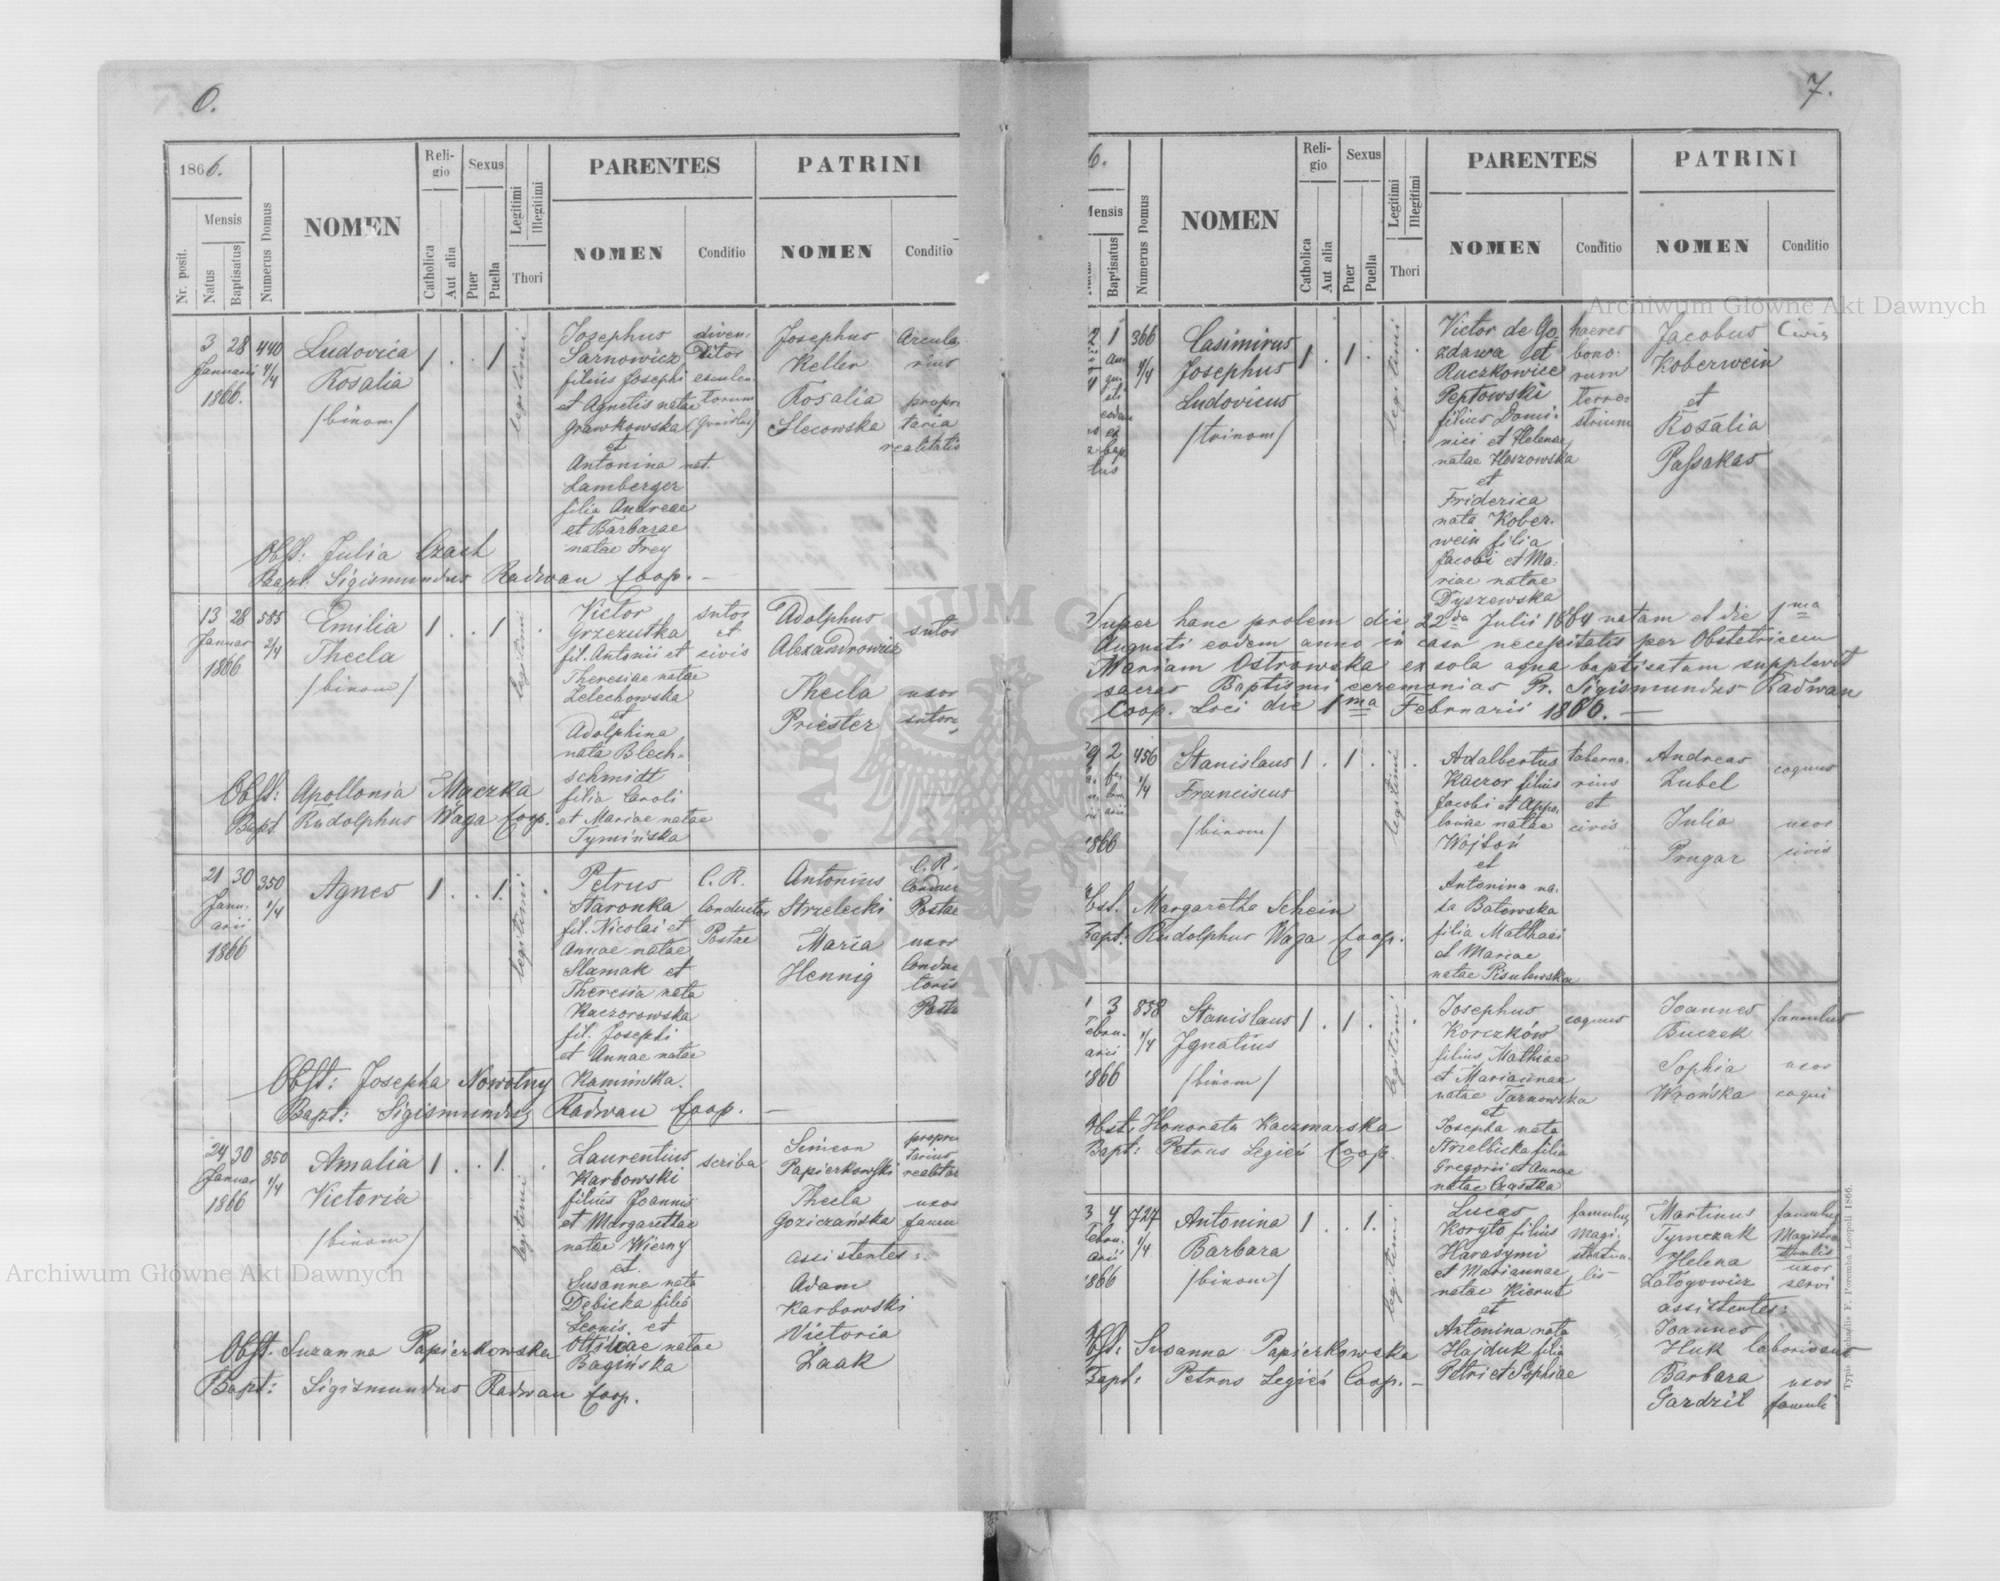 6.
1866.
Nr. posit.
Mensis
Natus
Baptisatus
Numerus Domus
NOMEN
Reli-
gio
Catholica
Aut alia
Sexus
Puer
Puella
Legitimi
Illegitimi
Thori
PARENTES
NOMEN
Conditio
PATRINI
NOMEN
Conditio
3 28
Januarii
1866.
440
4/4
Ludovica
Rosalia
/binom/
1 . . 1
legitimi
Josephus
Sarnowicz
filius Josephi
et Agnetis natae
Grawkowska
et
Antonina nat.
Lamberger
filia Andreae
et Barbarae
natae Frey
diven-
ditor
esculen-
torum
Josephus
Keller
Rosalia
Slecowska
Arcula-
rius
propri
taria
realitatis
Obst. Julia Czach
Bapt. Sigismundus Radwan Coop. —
13 28
Januar
1866
585
2/4
Emilia
Thecla
/binom/
1 . . 1
legitimi
Victor
Grzezutka
fil. Antonii et
Theresiae natae
Zelechowska
et
Adolphina
nata Blech-
schmidt
filia Caroli
et Mariae natae
Tymińska
sutor
et
civis
Adolphus
Alexandrowicz
Thecla
Priester
sutor
uxor
sutoris
Obst: Apollonia Mączka
Bapt. Rudolphus Waga Coop.
21 30
Janu-
arii
1866
350
1/4
Agnes
1 . . 1.
legitimi
Petrus
Staronka
fil. Nicolai et
Annae natae
Slamak et
Theresia nata
Kaczorowska
fil. Josephi
et Annae natae
Kamińska.
C. R.
Conductor
Postae
Antonius
Strzelecki
Maria
Hennig
C. R.
Conduc
Postae
uxor
Conduc
toris
Posta
Obst: Josepha Nowotny
Bapt: Sigismundus Radwan Coop. —
24 30
Januar
1866
850
1/4
Amalia
Victoria
/binom/
1 . . 1.
legitimi
Laurentius
Karbowski
filius Joannis
et Margarethae
natae Wierny
et
Susanna nata
Dębicka filia
Leonis et
Ottiliae natae
Bagińska
scriba
Simeon
Papierkowski
Thecla
Goziczańska
assistentes:
Adam
Karbowski
Victoria
Żaak
propri
tarius
realitat
uxor
famu
Obst. Suzanna Papierkowska
Bapt: Sigismundus Radwan Coop.
7.
6.
Mensis
Baptisatus
Numerus Domus
NOMEN
Reli-
gio
Catholica
Aut alia
Sexus
Puer
Puella
Legitimi
Illegitimi
Thori
PARENTES
NOMEN
Conditio
PATRINI
NOMEN
Conditio
2 1
366
4/4
Casimirus
Josephus
Ludovicus
/trinom/
1 . 1 .
legitimi
Victor de Go-
zdawa et
Raczkowice
Peptowski
filius Domi-
nici et Helenae
natae Hoszowska
et
Friderica
nata Kober-
wein filia
Jacobi et Ma-
riae natae
Dyszewska
haeres
bono-
rum
terre-
strium
Jacobus
Koberwein
et
Rosalia
Passakas
Civis
Super hanc prolem die 22da Julii 1864 natam et die 1ma
Augusti eodem anno in casu necessitatis per Obstetricem
Mariam Ostrowska ex sola aqua baptisatam supplevit
sacras Baptismi ceremonias Pr. Sigismundus Radwan
Coop. Loci die 1ma Februarii 1866. —
9 2
1866
456
1/4
Stanislaus
Franciscus
/binom/
1 . 1 .
legitimi
Adalbertus
Kaczor filius
Jacobi et Appo-
loniae natae
Wojtoń
et
Antonina na-
ta Batowska
filia Matthaei
et Mariae
natae Pisulawska
taberna-
rius
et
civis
Andreas
Zubel
Julia
Prugar
coquus
uxor
civis
Obst. Margaretha Schein
Bapt: Rudolphus Waga Coop.
1 3
Febru-
arii
1866
858
1/4
Stanislaus
Ignatius
/binom/
1 . 1 .
legitimi
Josephus
Korczków
filius Mathiae
et Mariannae
natae Tarnowska
et
Josepha nata
Strzelbicka filia
Gregorii et Annae
natae Cząstka
coquus
Joannes
Buczek
Sophia
Wrońska
famulus
uxor
coqui
Obst: Honorata Kaczmarska
Bapt: Petrus Legień Coop.
3 4
Febru-
arii
1866
727
1/4
Antonina
Barbara
/binom/
1 . . 1.
legitimi
Lucas
Koryto filius
Harasymi
et Mariannae
natae Kiernt
et
Antonina nata
Hajduk filia
Petri et Sophiae
famulus
Magi-
stratua-
lis —
Martinus
Tymczak
Helena
Zalogowicz
assistentes:
Joannes
Huk
Barbara
Gardzil
famulus
Magistra
tualis
uxor
servi
laboriosus
uxor
famuli
Obst: Susanna Papierkowska
Bapt: Petrus Legień Coop. —
Typis Michaelis F. Poremba Leopoli 1866.
Archiwum Główne Akt Dawnych
Archiwum Główne Akt Dawnych
ARCHIWUM GŁÓWNE AKT DAWNYCH